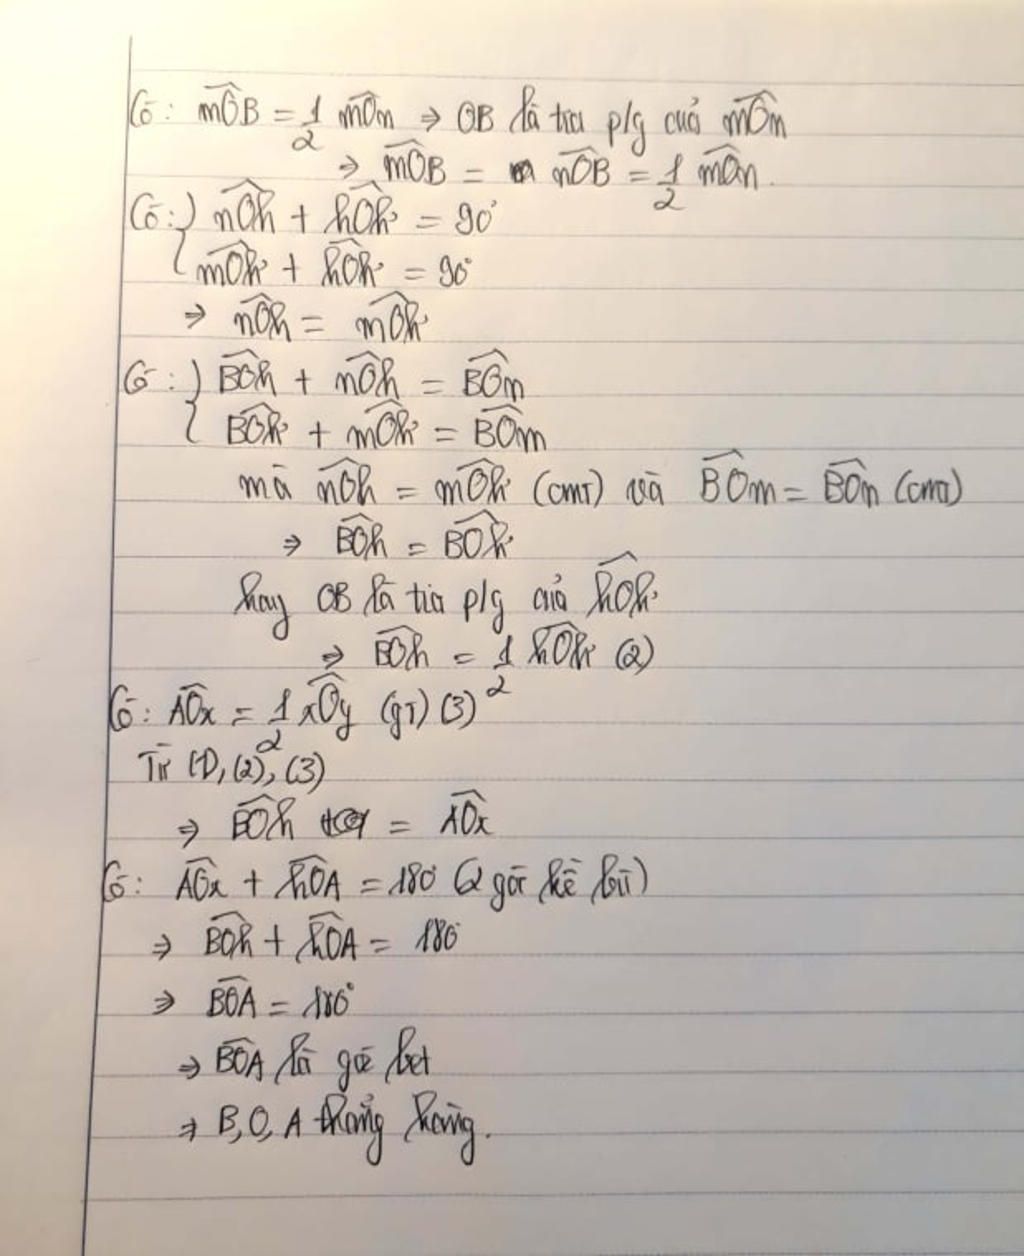 Có: mOB = 1/2 mOn ⇒ OB là tia p/g của mOn
⇒ mOB = nOB = 1/2 mOn.
Có: { nOh + hOk = 90°
mOk + hOk = 90°
⇒ nOh = mOk
Có: { BOh + nOh = BOn
BOk + mOk = BOm
mà nOh = mOk (cmt) và BOm = BOn (cmt)
⇒ BOh = BOk
hay OB là tia p/g của hOk
⇒ BOh = 1/2 hOk (2)
Có: AOx = 1/2 xOy (gt) (3)
Từ (1), (2), (3)
⇒ BOh = AOx
Có: AOx + hOA = 180° (2 góc kề bù)
⇒ BOh + hOA = 180°
⇒ BOA = 180°
⇒ BOA là góc bẹt
⇒ B, O, A thẳng hàng.